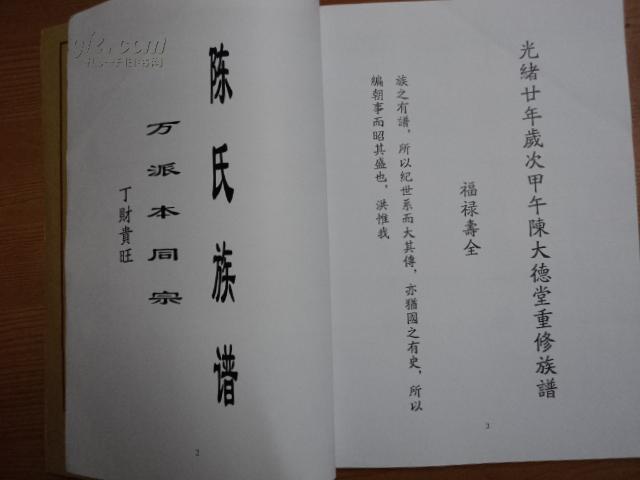 陈氏族谱
万派本同宗
丁財貴旺
2
光緒廿年歲次甲午陳大德堂重修族譜
福禄壽全
族之有譜，所以纪世系而大其傳，亦猶國之有史，所以
編朝事而昭其盛也，洪惟我
3